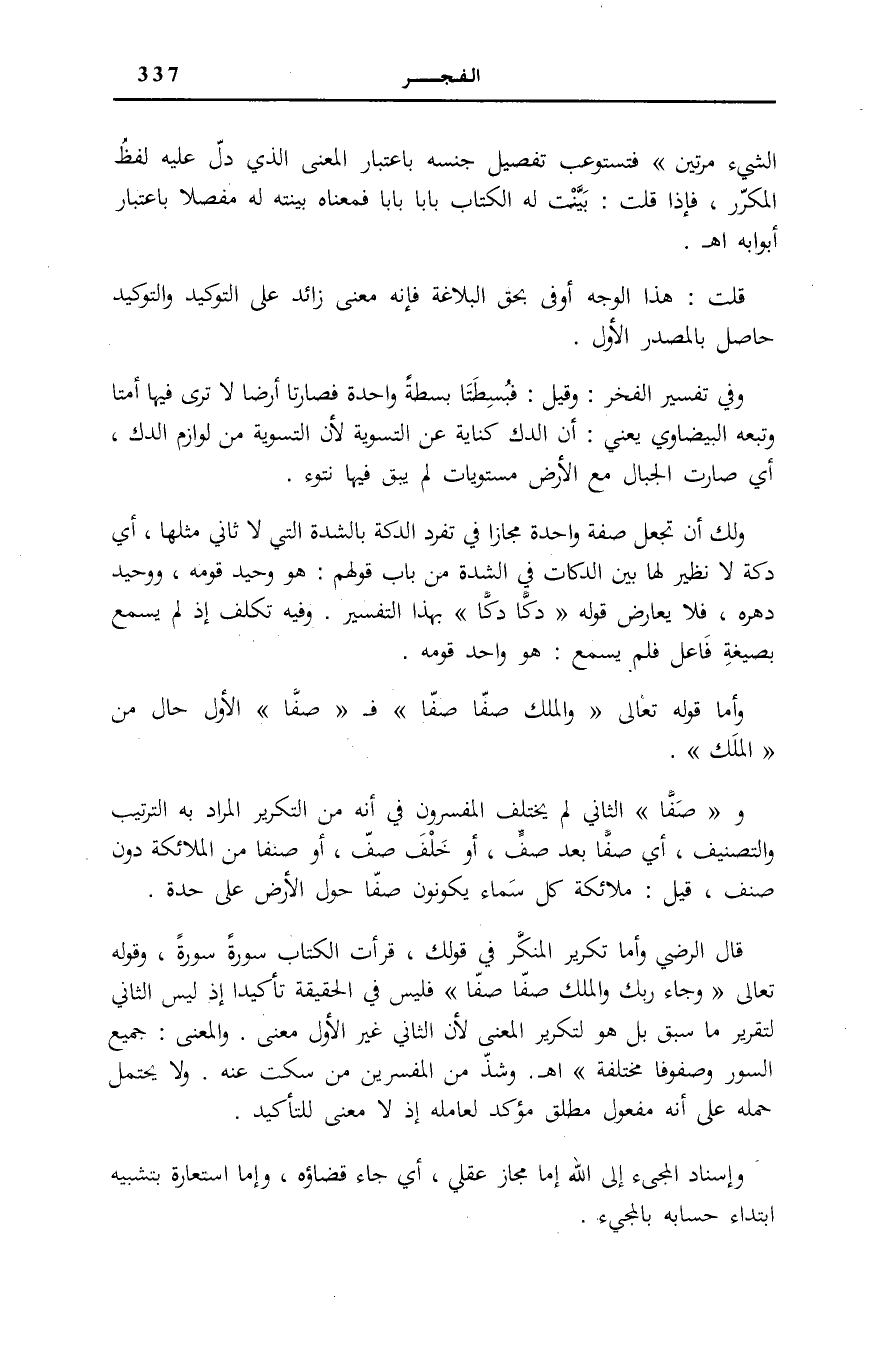 الفجـــر 337
الشيء مرتين » فتستوعب تفصيل جنسه باعتبار المعنى الذي دلّ عليه لفظُ
المكرّر ، فإذا قلت : بَيَّنْت له الكتاب بابا بابا فمعناه بينته له مفصلا باعتبار
أبوابه اهـ .
قلت : هذا الوجه أوفى بحق البلاغة فإنه معنى زائد على التوكيد والتوكيد
حاصل بالمصدر الأول .
وفي تفسير الفخر : وقيل : فبُسِطَتَا بسطةً واحدة فصارتا أرضا لا ترى فيها أمتا
وتبعه البيضاوي يعني : أن الدك كناية عن التسوية لأن التسوية من لوازم الدك ،
أي صارت الجبال مع الأرض مستويات لم يبق فيها نتوء .
ولك أن تجعل صفة واحدة مجازا في تفرد الدكة بالشدة التي لا ثاني مثلها ، أي
دكة لا نظير لها بين الدكات في الشدة من باب قولهم : هو وحيد قومه ، ووحيد
دهره ، فلا يعارض قوله « دكًّا دكًّا » بهذا التفسير . وفيه تكلف إذ لم يسمع
بصيغةِ فَاعل فلم يسمع : هو واحد قومه .
وأما قوله تعالى « والملك صفّا صفّا » فـ « صفَّا » الأول حال من
« الملَك » .
و « صَفَّا » الثاني لم يختلف المفسرون في أنه من التكرير المراد به الترتيب
والتصنيف ، أي صفًّا بعد صفٍّ ، أو خَلْفَ صفّ ، أو صنفا من الملائكة دون
صنف ، قيل : ملائكة كل سَماء يكونون صفّا حول الأرض على حدة .
قال الرضي وأما تكرير المنكَّر في قولك ، قرأت الكتاب سورةً سورةً ، وقوله
تعالى « وجاء ربك والملك صفّا صفّا » فليس في الحقيقة تأكيدا إذ ليس الثاني
لتقرير ما سبق بل هو لتكرير المعنى لأن الثاني غير الأول معنى . والمعنى : جميع
السور وصفوفا مختلفة » اهـ. وشذّ من المفسرين من سكت عنه . ولا يحتمل
حمله على أنه مفعول مطلق مؤكد لعامله إذ لا معنى للتأكيد .
وإسناد المجيء إلى الله إما مجاز عقلي ، أي جاء قضاؤه ، وإما استعارة بتشبيه
ابتداء حسابه بالمجيء .